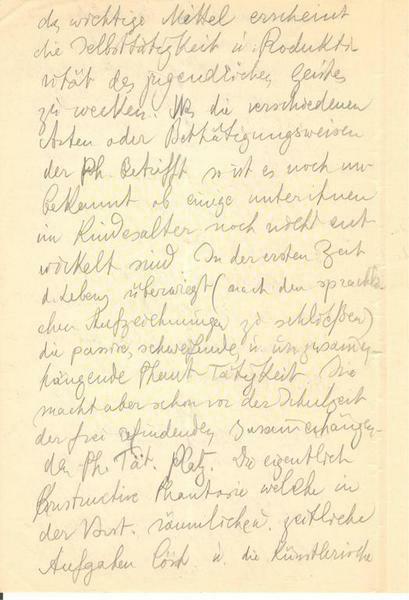 das wichtige Mittel erscheint
die Selbsttätigkeit u. Produkti
vität des jugendlichen Geistes
zu wecken. Was die verschiedenen
Arten oder Bethätigungsweisen
der Ph. Betrifft so ist es noch un
bekannt ob einige unter ihnen
im Kindesalter noch nicht ent
wickelt sind. In der ersten Zeit
d. Lebens überwiegt (nach den sprachli
chen Aufzeichnungen zu schließen)
die passive, schweifende, u. unzusammen-
hängende Phant. Tätigkeit. Sie
macht aber schon vor der Schulzeit
der frei erfindenden Zusammenhängen-
den Ph. Tät. Platz. Die eigentlich
Constructive Phantasie welche in
der Vorst. räumliche u. zeitliche
Aufgaben löst u. die Künstlerische